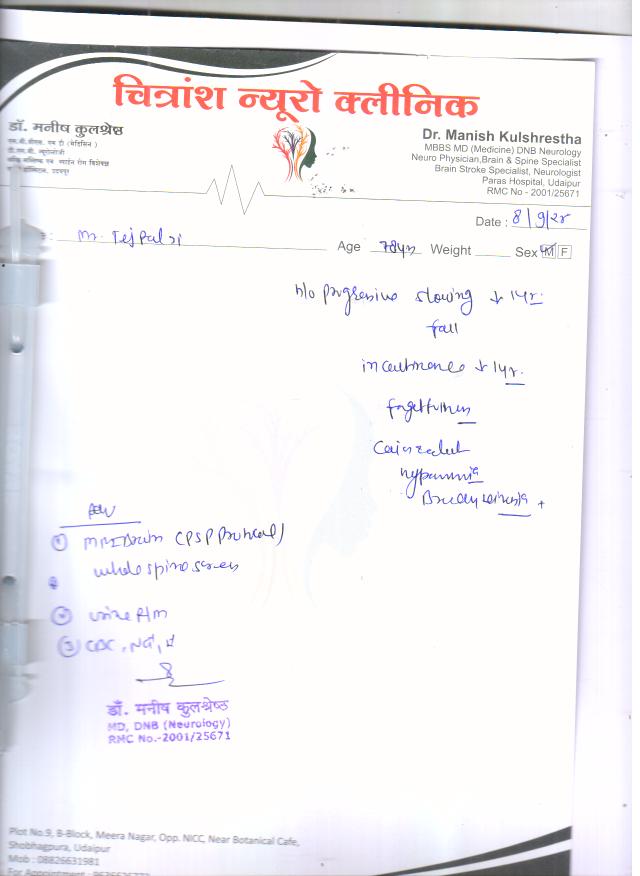 चित्रांश न्यूरो क्लीनिक
डॉ. मनीष कुलश्रेष्ठ
एम.बी.बी.एस. एम डी (मेडिसिन)
डी.एन.बी. न्यूरोलॉजी
उदयपुर
Dr. Manish Kulshrestha
MBBS MD (Medicine) DNB Neurology
Neuro Physician,Brain & Spine Specialist
Brain Stroke Specialist, Neurologist
Paras Hospital, Udaipur
RMC No - 2001/25671
Date : 8/9/25
Mr. Tejpal ji Age 78yr Weight Sex M F
h/o progressive slowing ↓ 1yr.
fall
incontinence ↓ 1yr.
forgetfulness
Conscious
hypomimia
Bradykinesia +
Adv
① MRI Brain (PSP Protocol)
whole spine screen
② Urine R/M
③ CBC, Na+, K+
डॉ. मनीष कुलश्रेष्ठ
MD, DNB (Neurology)
RMC No.-2001/25671
Plot No.9, B-Block, Meera Nagar, Opp. NICC, Near Botanical Cafe,
Shobhagpura, Udaipur
Mob : 08826631981
For Appointment :